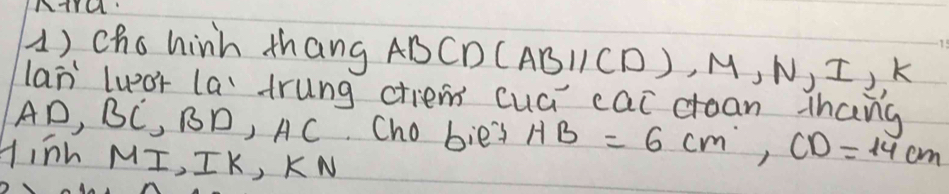 1) Cho hình thang ABCD (AB//CD), M, N, I, K
lần lượt là trung điểm của các đoạn thẳng
AD, BC, BD, AC. Cho biết AB = 6 cm, CD = 14 cm
Tính MI, IK, KN